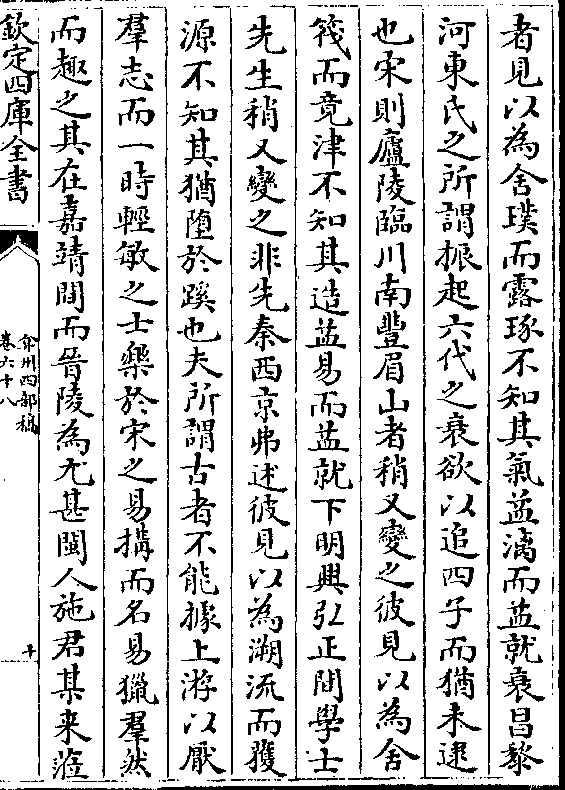 者見以為舍璞而露琢不知其氣益漓而益就衰昌黎
河東氏之所謂振起六代之衰欲以追四子而猶未逮
也宋則廬陵臨川南豐眉山者稍又變之彼見以為舍
筏而竟津不知其造益易而益就下明興弘正間學士
先生稍又變之非先秦西京弗述彼見以為溯流而獲
源不知其猶墮於蹊也夫所謂古者不能據上游以厭
羣志而一時輕敏之士樂於宋之易搆而名易獵羣然
而趣之其在嘉靖間而晉陵為尤甚閩人施君某来蒞
欽定四庫全書
弇州四部稿
卷六十八
十